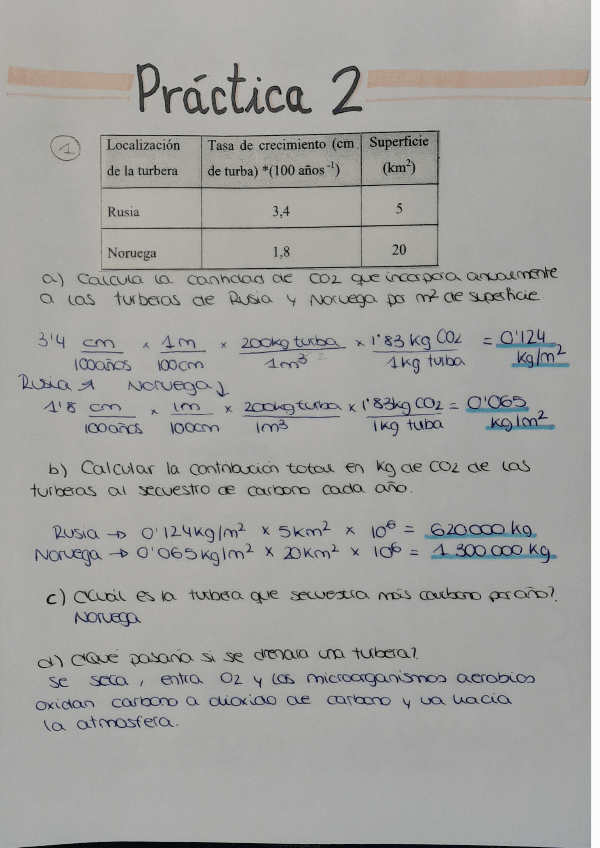 Práctica 2
1
Localización de la turbera | Tasa de crecimiento (cm de turba) *(100 años⁻¹) | Superficie (km²)
Rusia | 3,4 | 5
Noruega | 1,8 | 20
a) Calcula la cantidad de CO2 que incorpora anualmente
a las turberas de Rusia y Noruega por m² de superficie
3'4 cm/100años × 1m/100cm × 200kg turba/1m³ × 1'83 kg CO2/1kg turba = 0'124 kg/m²
Rusia ↗ Noruega ↓
1'8 cm/100años × 1m/100cm × 200kg turba/1m³ × 1'83kg CO2/1kg turba = 0'065 kg/m²
b) Calcular la contribución total en kg de CO2 de las
turberas al secuestro de carbono cada año.
Rusia → 0'124kg/m² × 5km² × 10⁶ = 620000 kg
Noruega → 0'065kg/m² × 20km² × 10⁶ = 1 300 000 kg
c) ¿Cuál es la turbera que secuestra más carbono por año?
Noruega
d) ¿Qué pasaría si se drenara una turbera?
se seca, entra O2 y los microorganismos aerobios
oxidan carbono a dioxido de carbono y va hacia
la atmosfera.